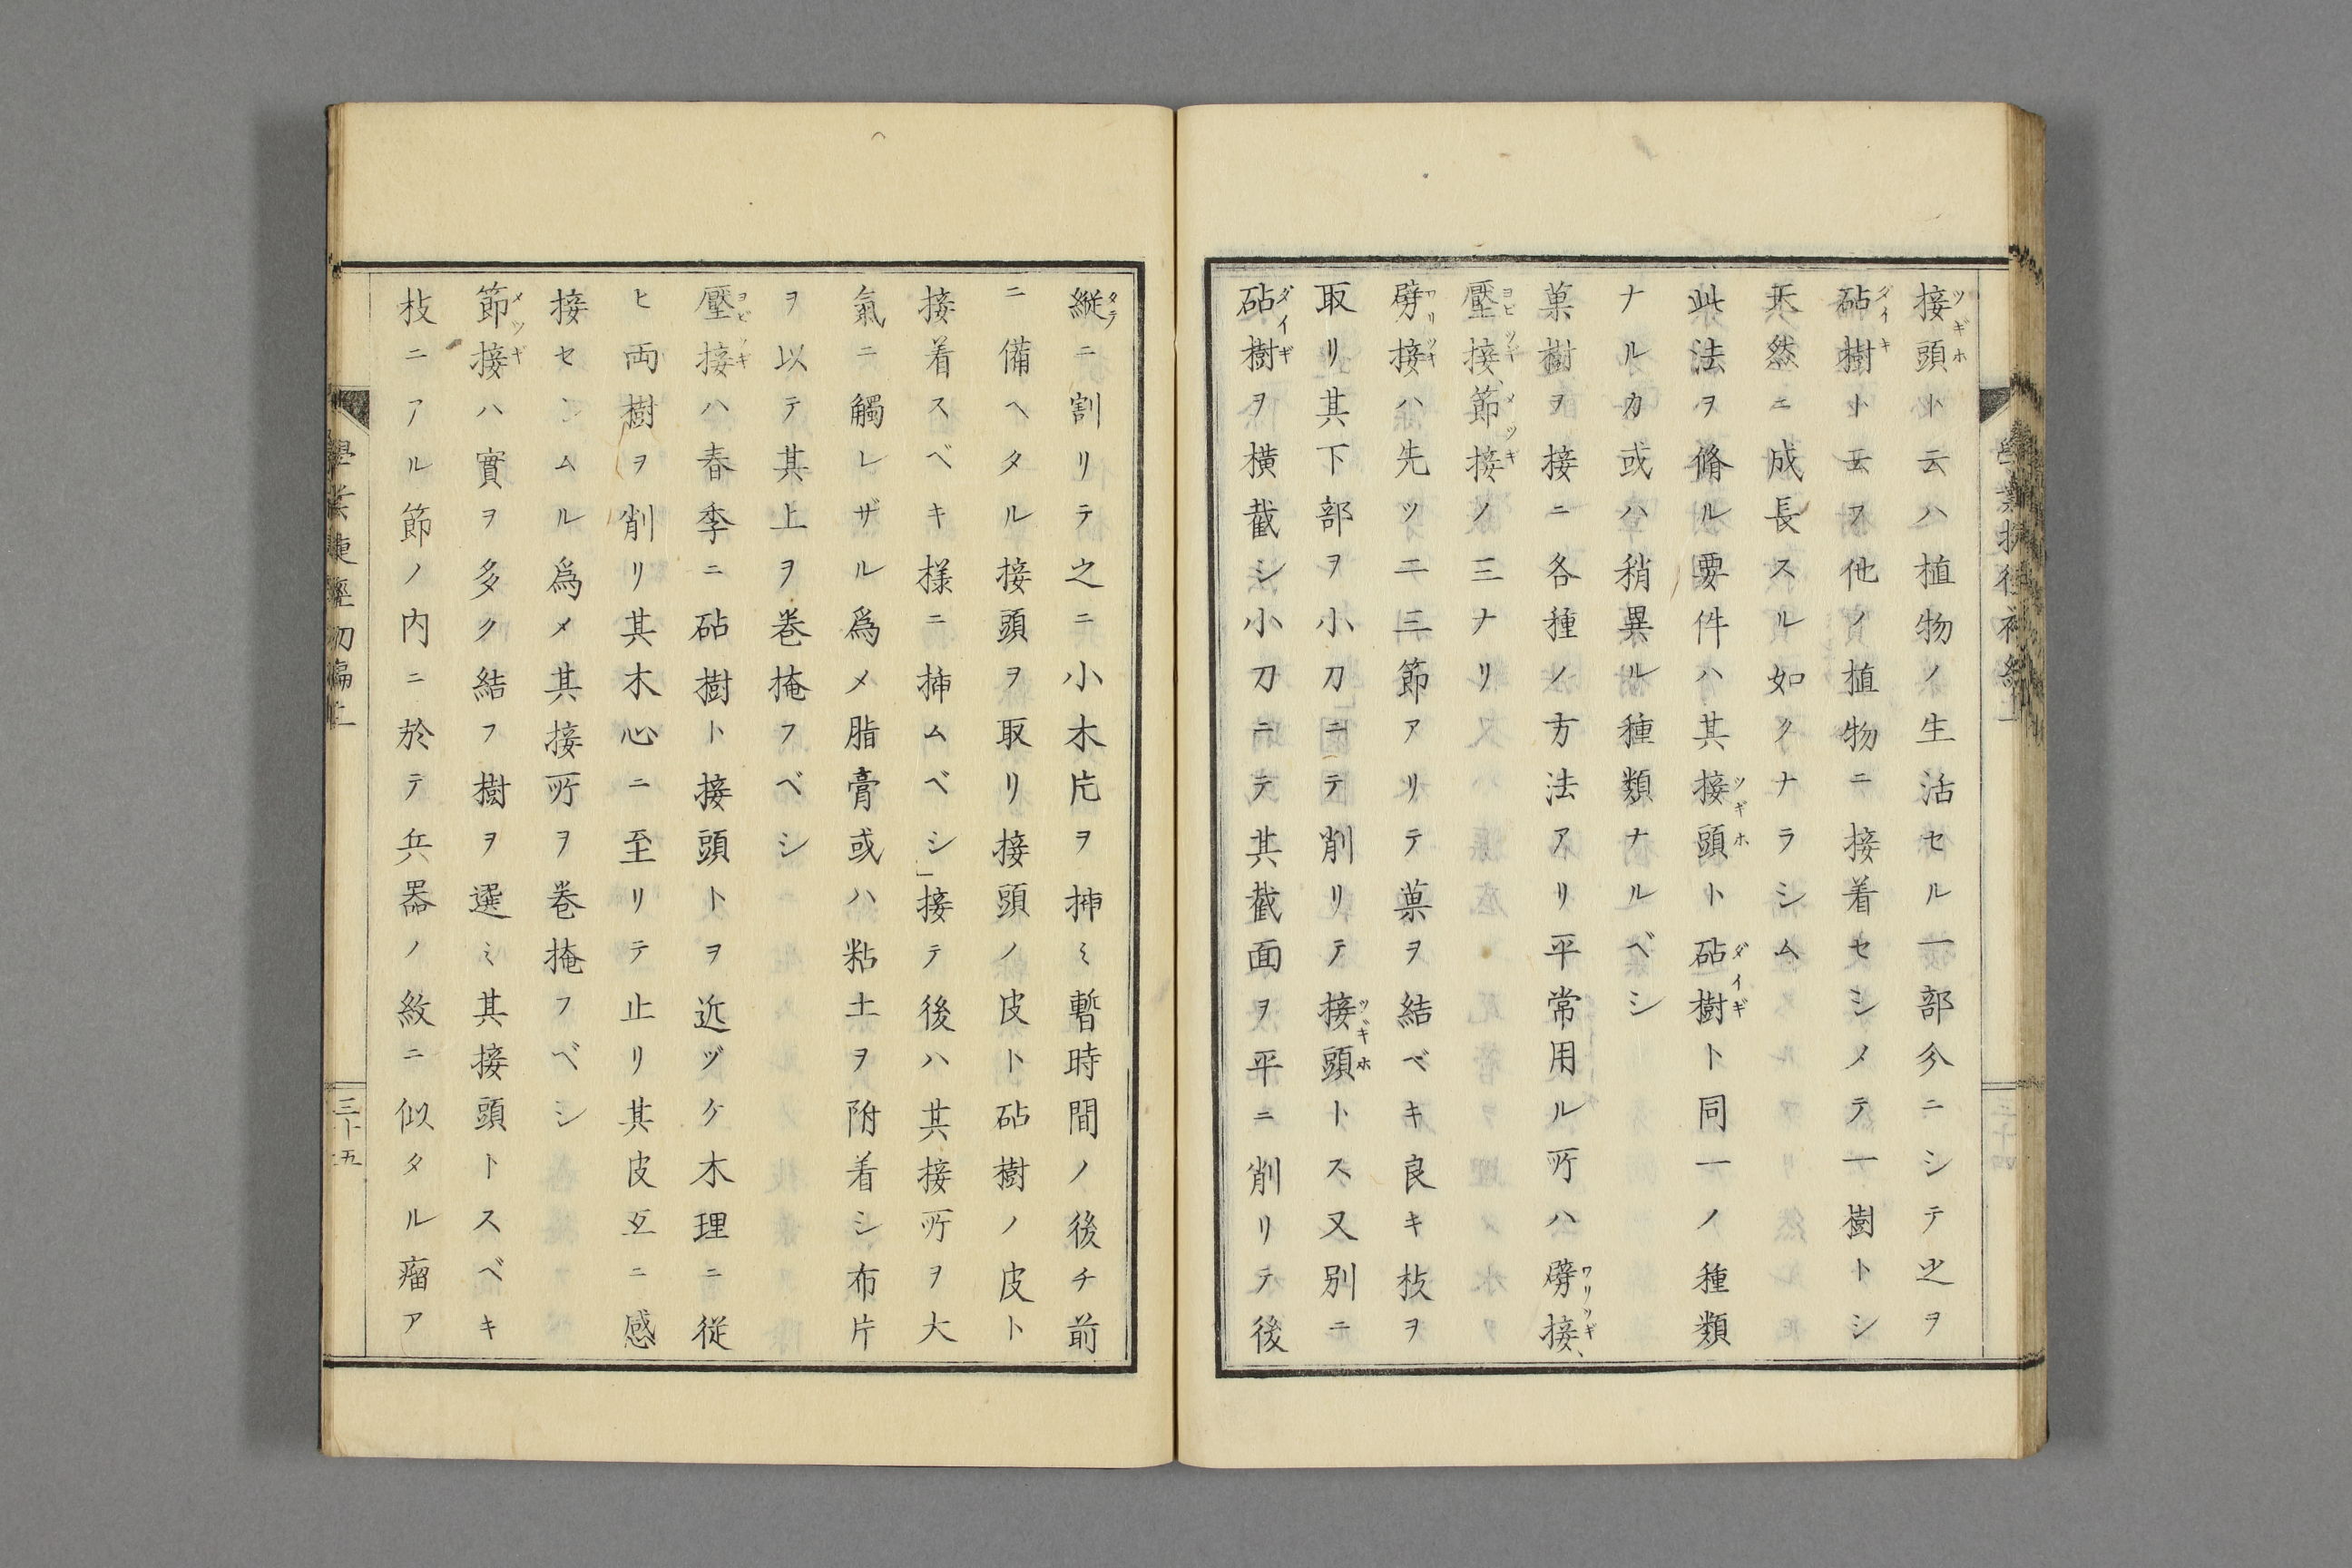 接頭ト云ハ植物ノ生活セル一部分ニシテ之ヲ
砧樹ト云フ他ノ植物ニ接着セシメテ一樹トシ
天然ニ成長スル如クナラシム
此法ヲ脩ル要件ハ其接頭ト砧樹ト同一ノ種類
ナルカ或ハ稍異ル種類ナルベシ
菓樹ヲ接ニ各種ノ方法アリ平常用ル所ハ劈接、
壓接、節接ノ三ナリ
劈接ハ先ツ二三節アリテ菓ヲ結ベキ良キ枝ヲ
取リ其下部ヲ小刀ニテ削リテ接頭トス又別ニ
砧樹ヲ横截シ小刀ニテ其截面ヲ平ニ削リテ後
縦ニ割リテ之ニ小木片ヲ挿ミ暫時間ノ後チ前
ニ備ヘタル接頭ヲ取リ接頭ノ皮ト砧樹ノ皮ト
接着スベキ様ニ挿ムベシ」接テ後ハ其接所ヲ大
氣ニ觸レザル爲メ脂膏或ハ粘土ヲ附着シ布片
ヲ以テ其上ヲ巻掩フベシ
壓接ハ春季ニ砧樹ト接頭トヲ近ヅケ木理ニ従
ヒ両樹ヲ削リ其木心ニ至リテ止リ其皮互ニ感
接センムル爲メ其接所ヲ巻掩フベシ
節接ハ實ヲ多ク結フ樹ヲ選ミ其接頭トスベキ
枝ニアル節ノ内ニ於テ兵器ノ紋ニ似タル瘤ア
三十五